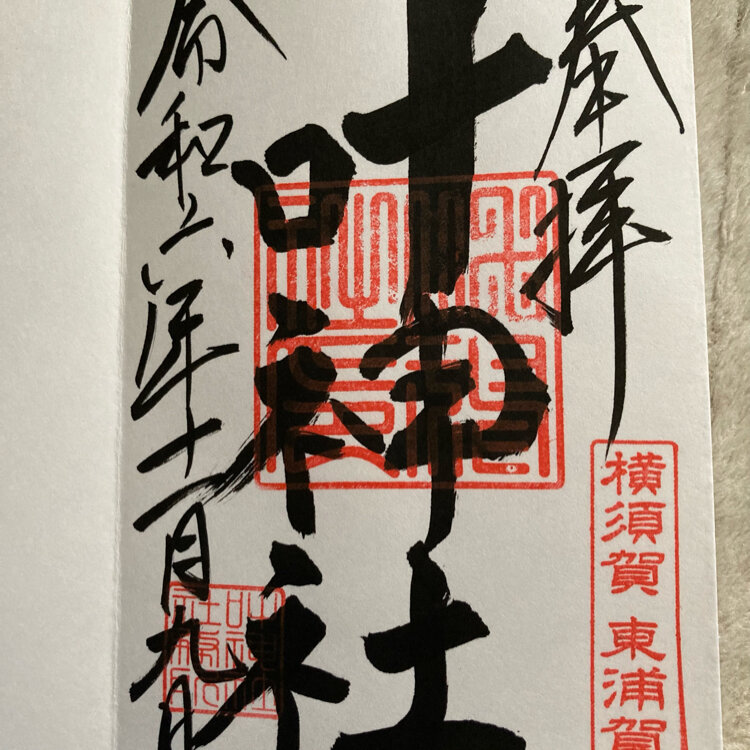 奉拝
横須賀 東浦賀
叶神社
令和六年十一月九日